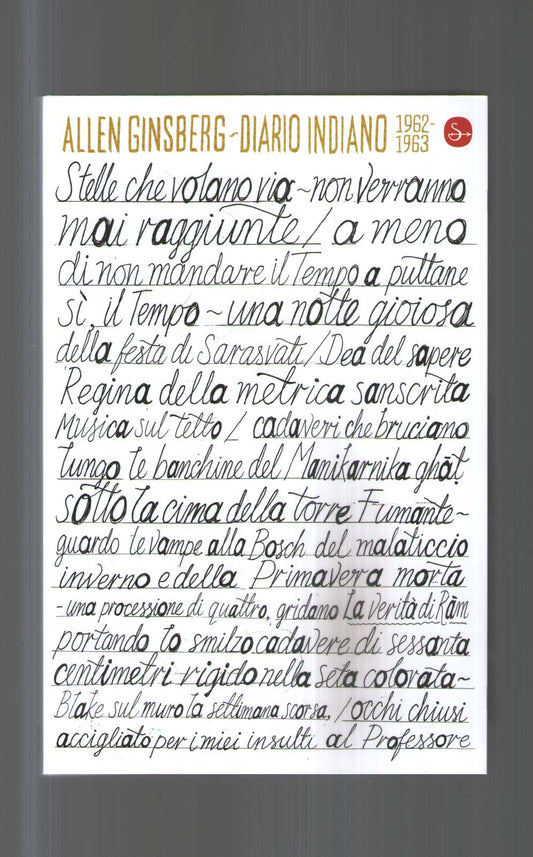 ALLEN GINSBERG ~ DIARIO INDIANO 1962-1963
Stelle che volano via ~ non verranno
mai raggiunte / a meno
di non mandare il Tempo a puttane
sì, il Tempo ~ una notte gioiosa
della festa di Sarasvati / Dea del sapere
Regina della metrica sanscrita
Musica sul tetto / cadaveri che bruciano
lungo le banchine del Manikarnika ghāt
sotto la cima della torre Fumante ~
guardo le vampe alla Bosch del malaticcio
inverno e della Primavera morta
- una processione di quattro, gridano La verità di Rām
portando lo smilzo cadavere di sessanta
centimetri rigido nella seta colorata ~
Blake sul muro la settimana scorsa, / occhi chiusi
accigliato per i miei insulti al Professore